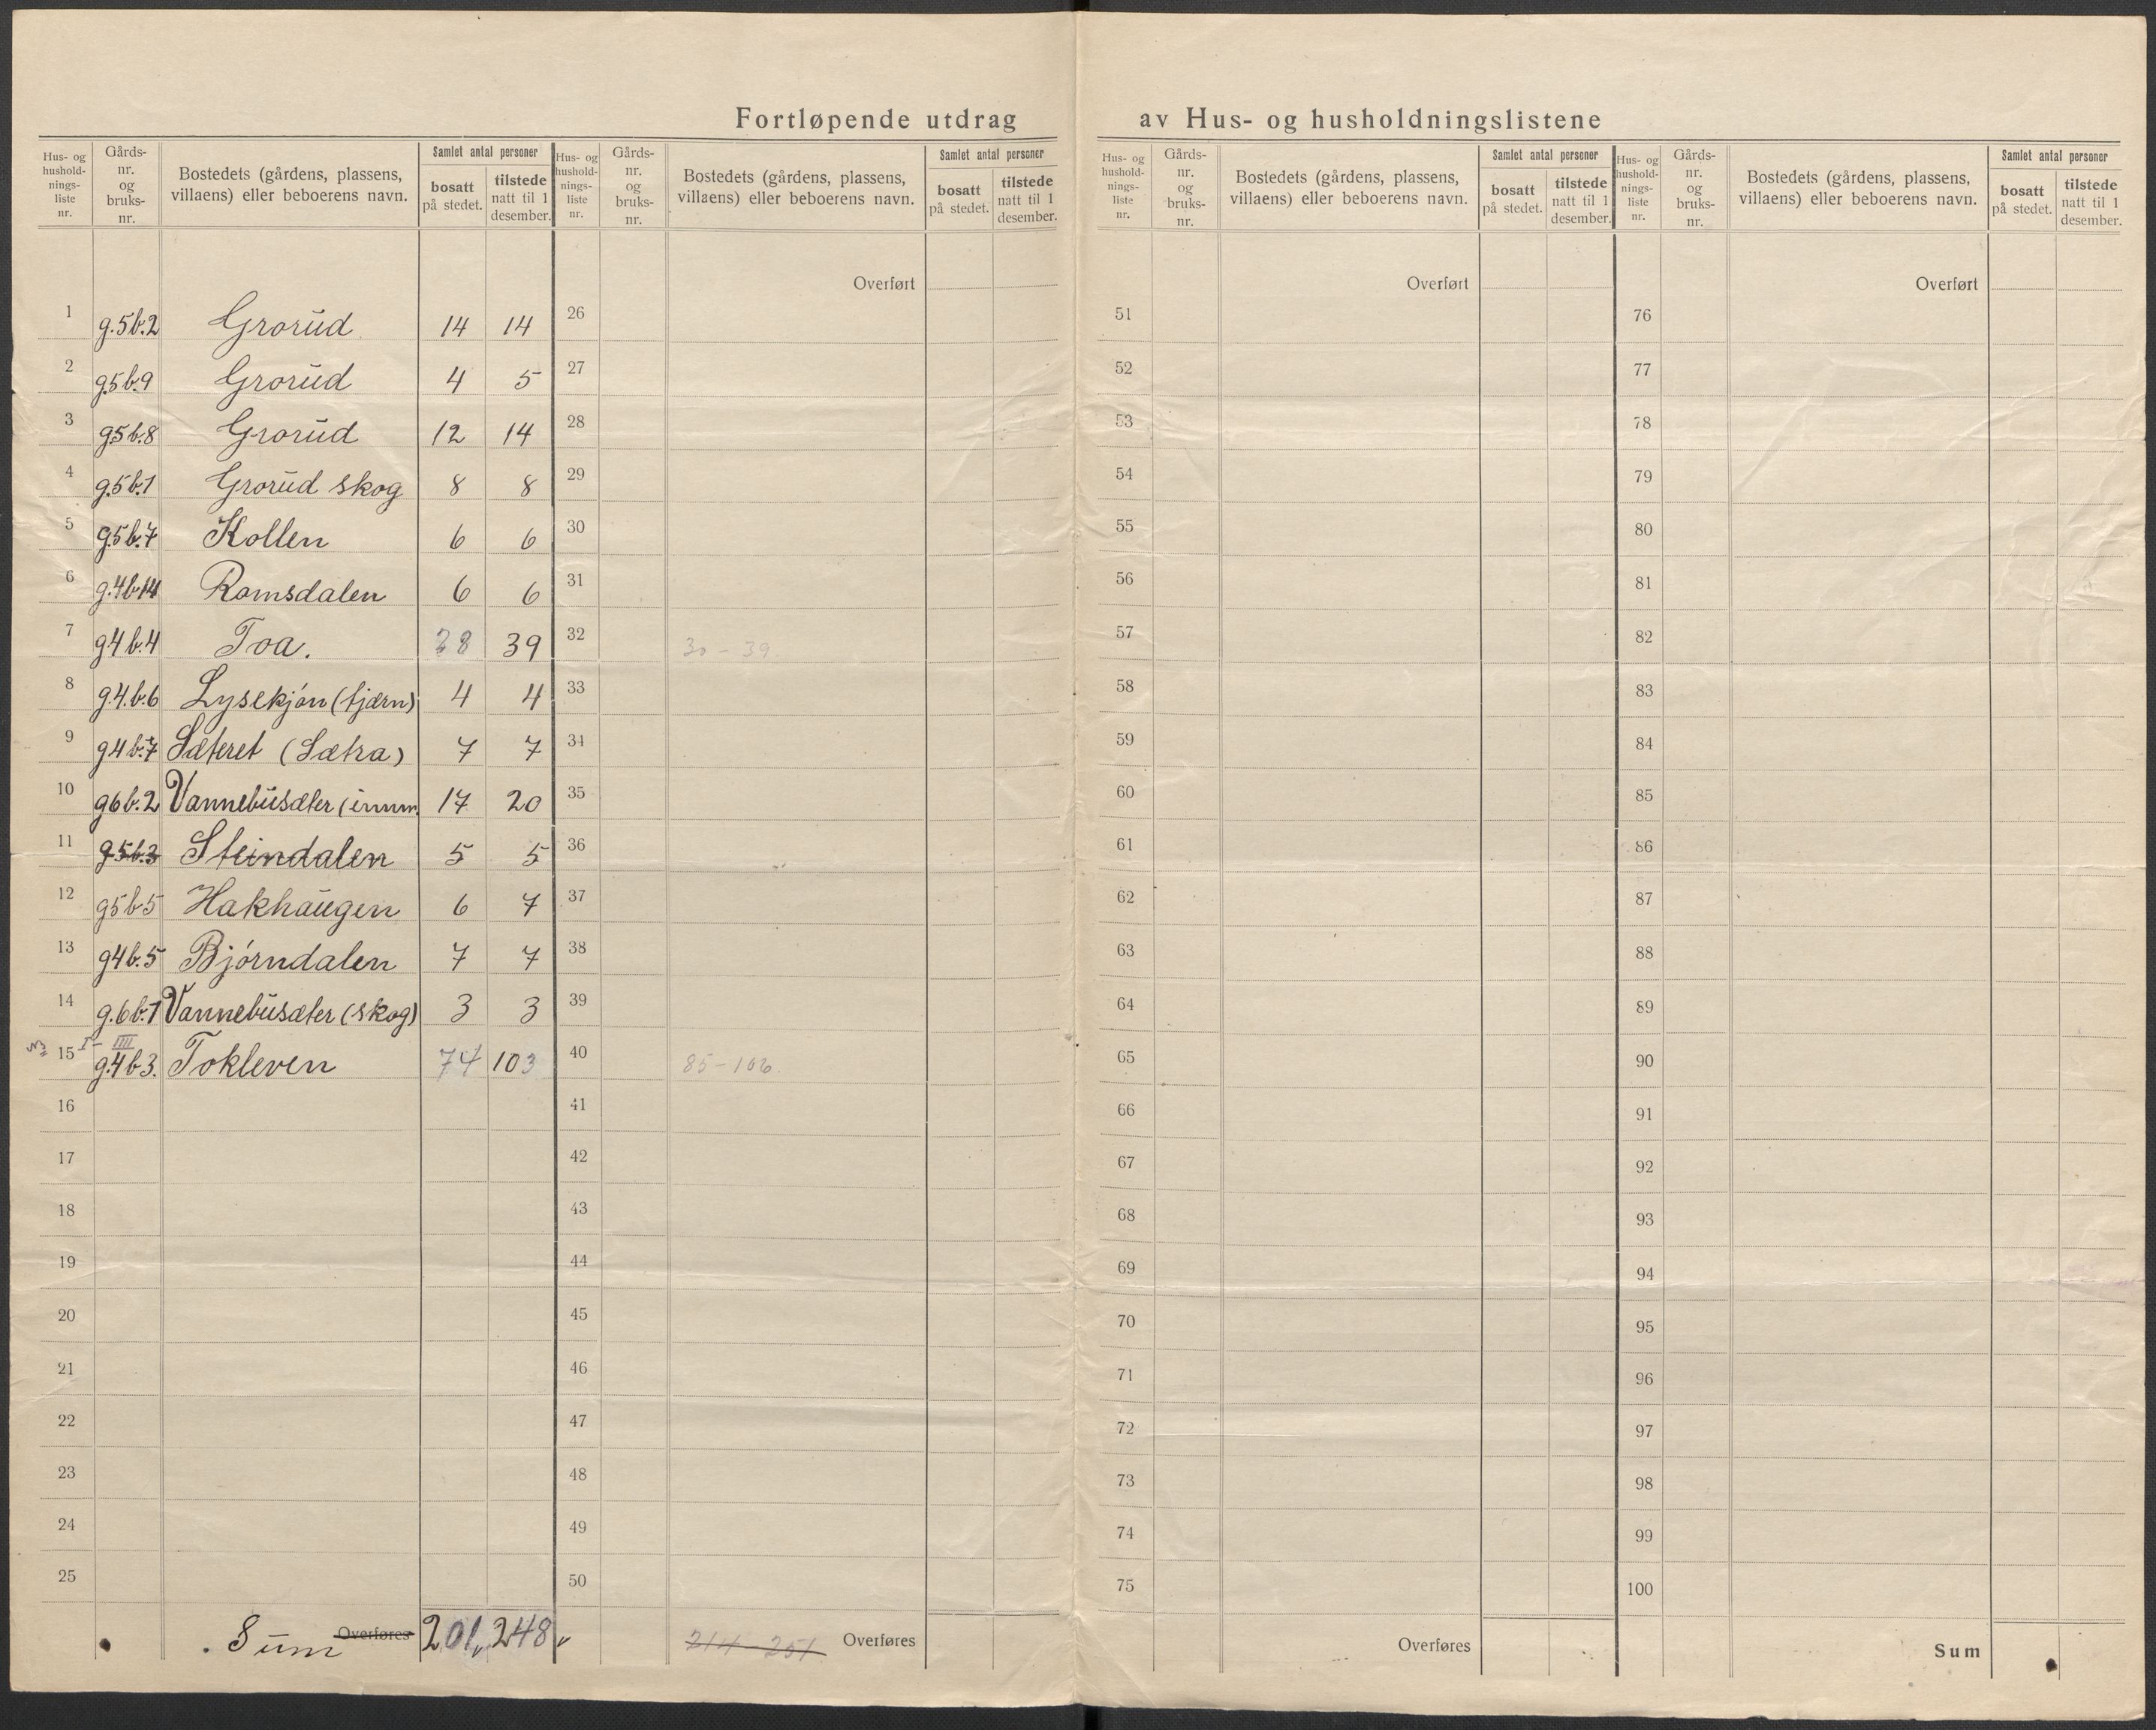 Fortløpende utdrag av Hus- og husholdningslistene
Hus- og hushold-nings-liste nr. Gårds-nr. og bruks-nr. Bostedets (gårdens, plassens, villaens) eller beboerens navn. Samlet antal personer bosatt på stedet. tilstede natt til 1 desember.
Hus- og hushold-nings-liste nr. Gårds-nr. og bruks-nr. Bostedets (gårdens, plassens, villaens) eller beboerens navn. Samlet antal personer bosatt på stedet. tilstede natt til 1 desember.
Hus- og hushold-nings-liste nr. Gårds-nr. og bruks-nr. Bostedets (gårdens, plassens, villaens) eller beboerens navn. Samlet antal personer bosatt på stedet. tilstede natt til 1 desember.
Hus- og hushold-nings-liste nr. Gårds-nr. og bruks-nr. Bostedets (gårdens, plassens, villaens) eller beboerens navn. Samlet antal personer bosatt på stedet. tilstede natt til 1 desember.
Overført Overført Overført
1 g.5b.2 Grorud 14 14 26 51 76
2 g5b.9 Grorud 4 5 27 52 77
3 g5b.8 Grorud 12 14 28 53 78
4 g.5b.1 Grorud skog 8 8 29 54 79
5 g.5b.7 Kollen 6 6 30 55 80
6 g.4b14 Romsdalen 6 6 31 56 81
7 g4b.4 Toa. 28 39 32 30 - 39 57 82
8 g.4.b.6 Lysekjøn (tjærn) 4 4 33 58 83
9 g4b.7 Sæteret (Sætra) 7 7 34 59 84
10 g6b.2 Vannebusæter (innm. 17 20 35 60 85
11 g.5b.3 Steindalen 5 5 36 61 86
12 g5b.5 Hakhaugen 6 7 37 62 87
13 g4b.5 Bjørndalen 7 7 38 63 88
14 g.6b.1 Vannebusæter (skog) 3 3 39 64 89
15 I - III g.4b3. Tokleven 74 103 40 85 - 106 65 90
16 41 66 91
17 42 67 92
18 43 68 93
19 44 69 94
20 45 70 95
21 46 71 96
22 47 72 97
23 48 73 98
24 49 74 99
25 50 75 100
Sum Overføres 201 248 214 - 251 Overføres Overføres Sum